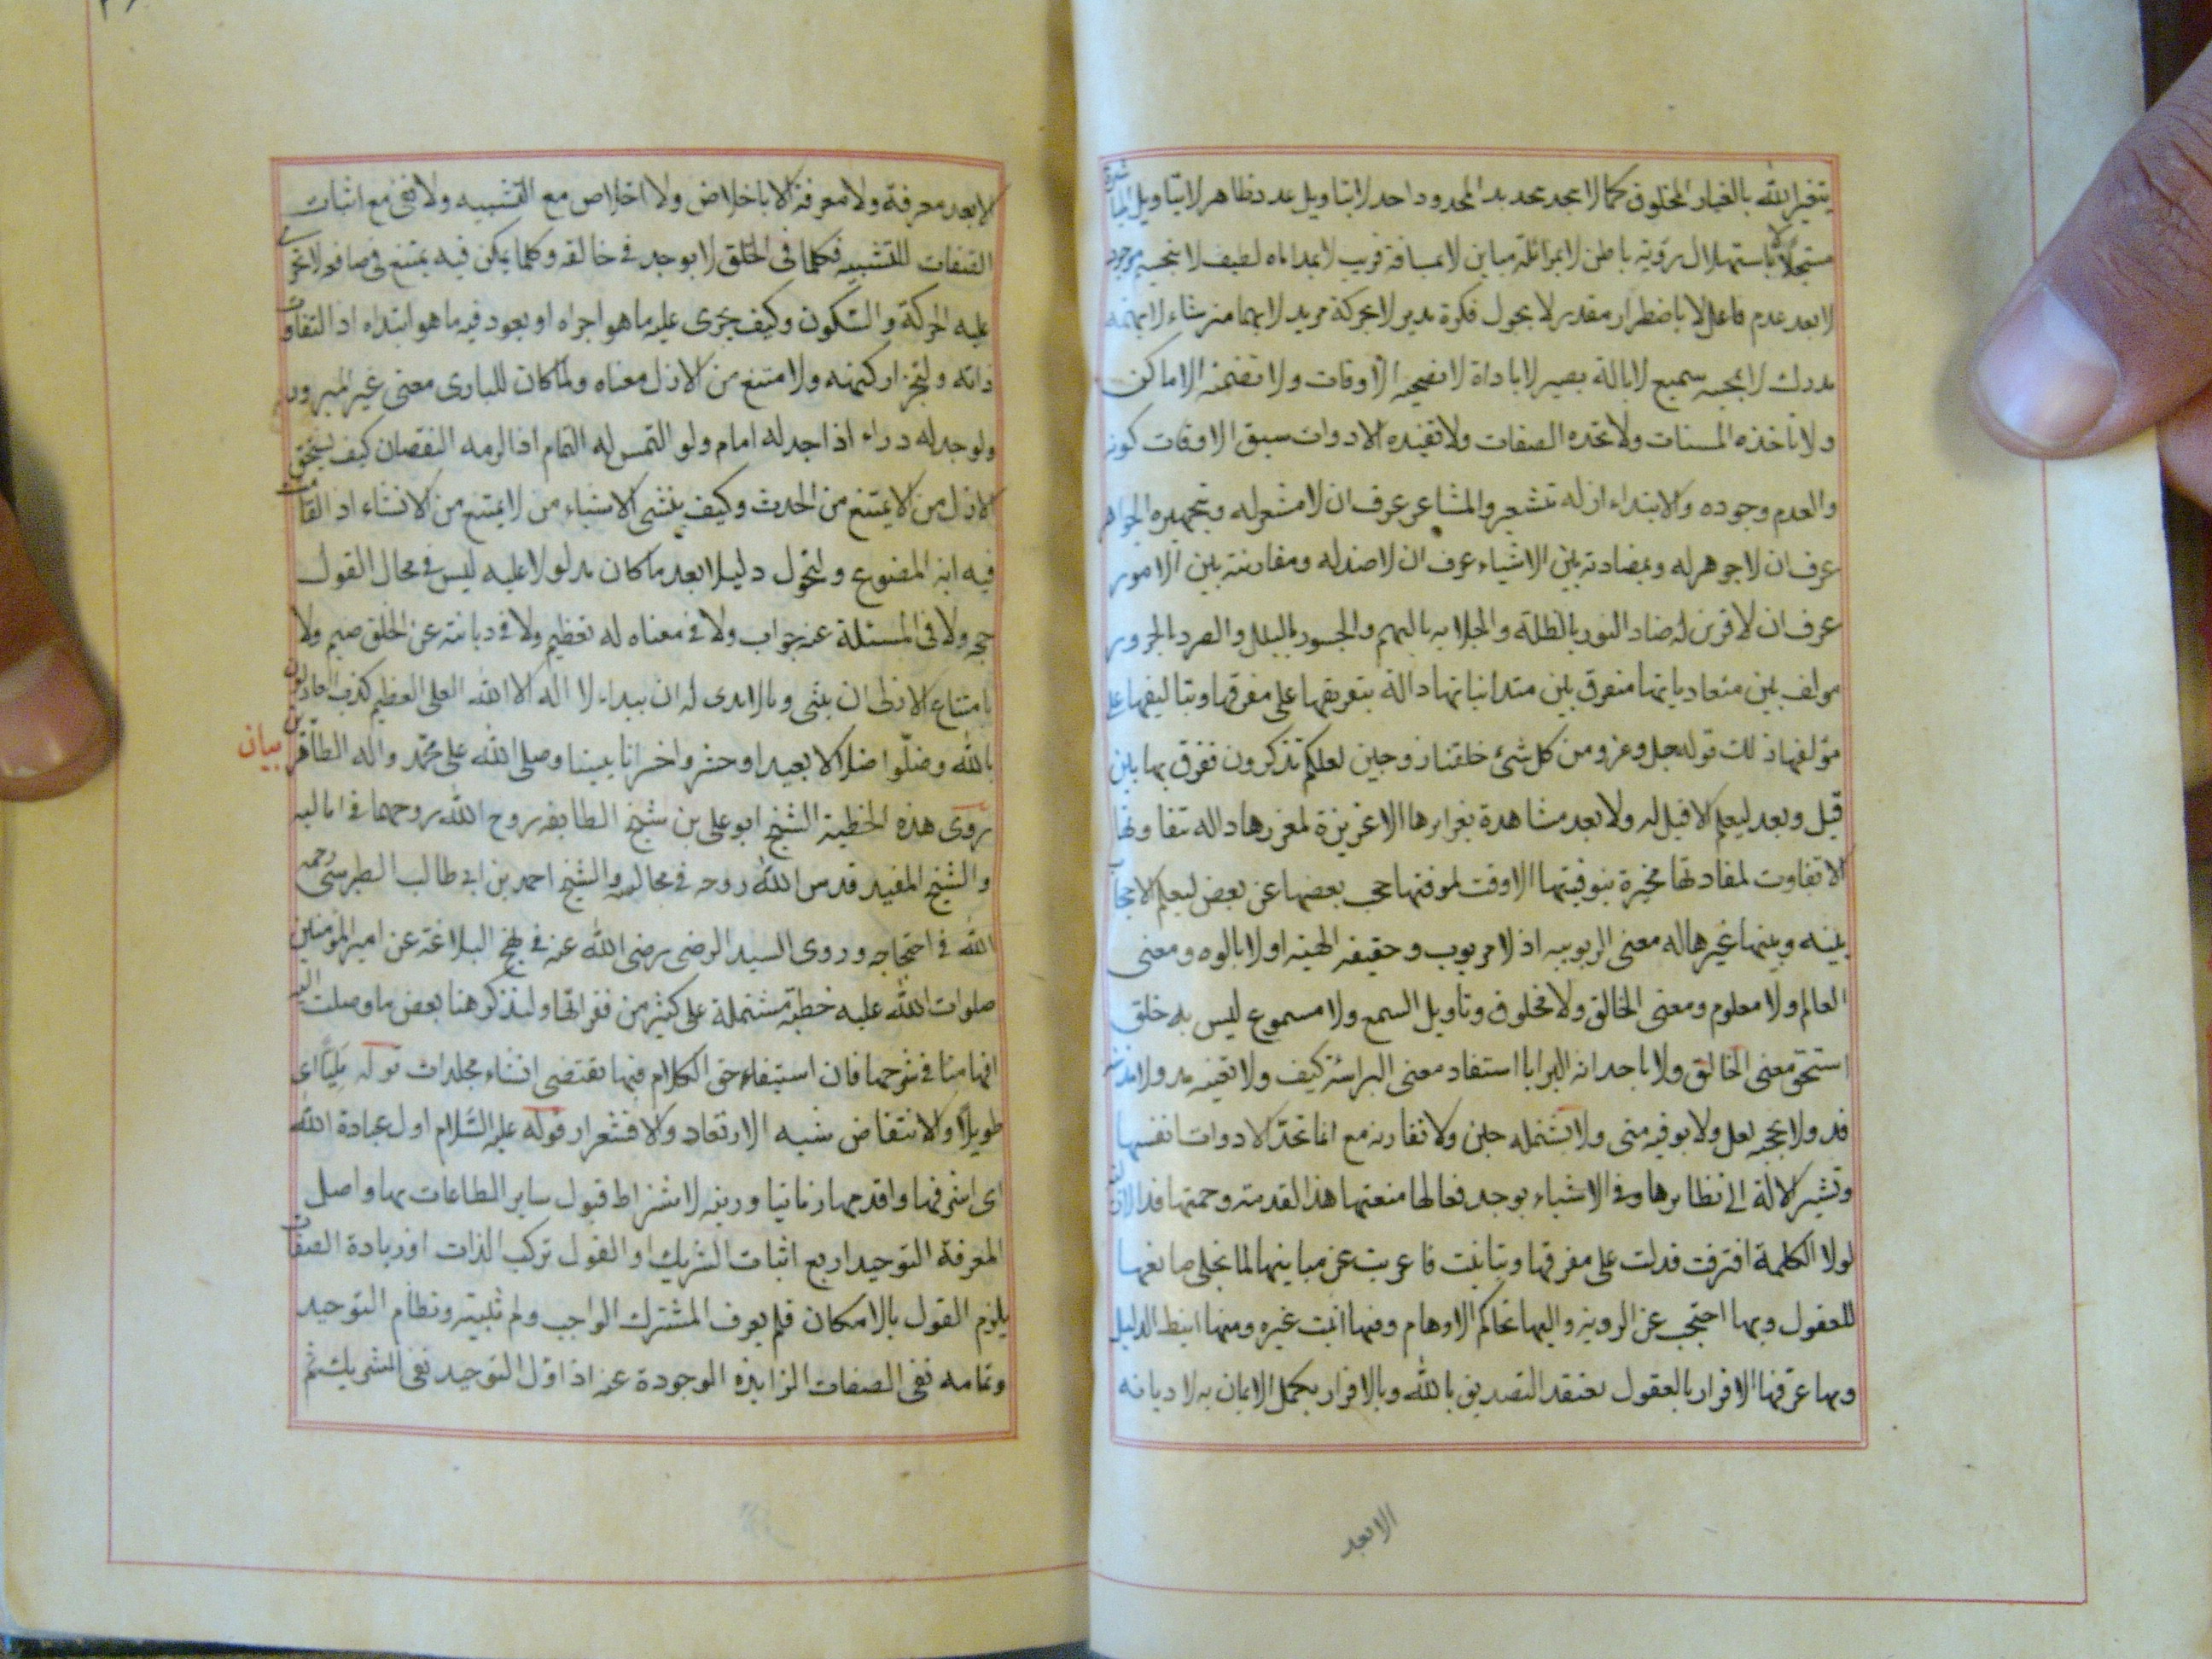 يتغير الله بانغيار المخلوق كما لا يتحدد بتحديد المحدود احد لا بتاويل عدد ظاهر لا بتاويل المباشرة
متجل لا باستهلال رؤية باطن لا بمزائلة مباين لا بمسافة قريب لا بمداناه لطيف لا بتجسيم موجود
لا بعد عدم فاعل لا باضطرار مقدر لا بحول فكرة مدبر لا بحركة مريد لا بهمامة شاء لا بهمة
مدرك لا بمجسه سميع لا بالة بصير لا باداة لا تصحبه الاوقات ولا تضمنه الاماكن
ولا تاخذه السنات ولا تحده الصفات ولا تقيده الادوات سبق الاوقات كونه
والعدم وجوده والابتداء ازله بتشعيره المشاعر عرف ان لا مشعر له وبتجهيره الجواهر
عرف ان لا جوهر له وبمضادته بين الاشياء عرف ان لا ضد له ومقارنته بين الامور
عرف ان لا قرين له ضاد النور بالظلمة والجلاية بالبهم والجسو بالبلل والصرد بالحرور
مولف بين متعادياتها متفرق بين متدانياتها دالة بتفريقها على مفرقها وبتاليفها على
مؤلفها ذلك قوله جل وعز ومن كل شئ خلقنا زوجين لعلكم تذكرون ففرق بها بين
قبل وبعد ليعلم الا قبل له ولا بعد مشاهدة بغرايزها الا غريزة لمغرزها داله بتفاوتها
الا تفاوت لمفاوتها مخبرة بتوقيتها الا وقت لموقتها حجب بعضها عن بعض ليعلم الا حجاب
بينه وبينها غيرها له معنى الربوبيه اذ لا مربوب وحقيقه الهيه اذ لا مالوه ومعنى
العالم ولا معلوم ومعنى الخالق ولا مخلوق وتاويل السمع ولا مسموع ليس مذ خلق
استحق معنى الخالق ولا باحداثه البرايا استفاد معنى البرائية كيف ولا تغيبه مذ ولا تدنيه
قد ولا يحجبه لعل ولا يوقته متى ولا يشتمله حين ولا تقارنه مع انما تحد الادوات انفسها
وتشير الالة الى نظايرها وفي الاشياء يوجد فعالها منعتها مذ القدمة وحمتها قد الازلية
لولا الكلمة افترقت فدلت على مفرقها وتباينت فاعربت عن مباينها لما تجلى صانعها
للعقول وبها احتجب عن الروية واليها تحاكم الاوهام وفيها اثبت غيره ومنها انيط الدليل
وبها عرفها الاقرار بالعقول يعتقد التصديق بالله وبالاقرار يكمل الايمان به لا ديانه
الا بعد
الا بعد معرفة ولا معرفة الا باخلاص ولا اخلاص مع التشبيه ولا نفي مع اثبات
الصفات للتشبيه فكلما في الخلق لا يوجد في خالقه وكلما يمكن فيه يمتنع في صانعه لا تجري
عليه الحركة والسكون وكيف يجزى عليه ما هو اجراه او يعود فيه ما هو ابتداه اذا لتفاوت
ذاته ولتجزا كنهه ولامتنع من الازل معناه ولما كان للبارى معنى غير المبروء
ولو حد له وراء اذا لحد له امام ولو التمس له التمام اذا لزمه النقصان كيف يستحق
الازل من لا يمتنع من الحدث وكيف ينشى الاشياء من لا يمتنع من الانشاء اذا لقامت
فيه اية المصنوع ولتحول دليلا بعد ما كان مدلولا عليه ليس في محال القول
حجة ولا في المسئلة عنه جواب ولا في معناه له تعظيم ولا في ابانته عن الخلق ضيم ولا
بامتناع الازلى ان يثنى وبالابدى له ان يبداء لا اله الا الله العلى العظيم كذب العادلون
بالله وضلوا ضلالا بعيدا وخسروا خسرانا مبينا وصلى الله على محمد واله الطاهرين
بيان
روى هذه الخطبة الشيخ ابو على بن شيخ الطايفه روح الله روحهما في اماليه
والشيخ المفيد قدس الله روحه في مجالسه والشيخ احمد بن ابى طالب الطبرسى رحمه
الله في احتجاجه وروى السيد الرضى رضى الله عنه في نهج البلاغة عن امير المؤمنين
صلوات الله عليه خطبة مشتملة على كثير من فقراتها ولنذكر هنا بعض ما وصلت اليه
افهامنا في شرحها فان استيفاء حق الكلام فيها يقتضى انشاء مجلدات قوله مليا اى
طويلا والانتفاض شبه الارتعاد والاقشعرار قوله عليه السلام اول عبادة الله
اى اشرفها واقدمها زمانا ورتبه لاشتراط قبول ساير الطاعات بها واصل
المعرفة التوحيد اذ مع اثبات الشريك او القول بتركب الذات او زيادة الصفات
يلزم القول بالامكان فلم يعرف المشرك الواجب ولم يثبته ونظام التوحيد
وتمامه نفى الصفات الزايدة الموجودة عنه اذ اول التوحيد نفى الشريك ثم